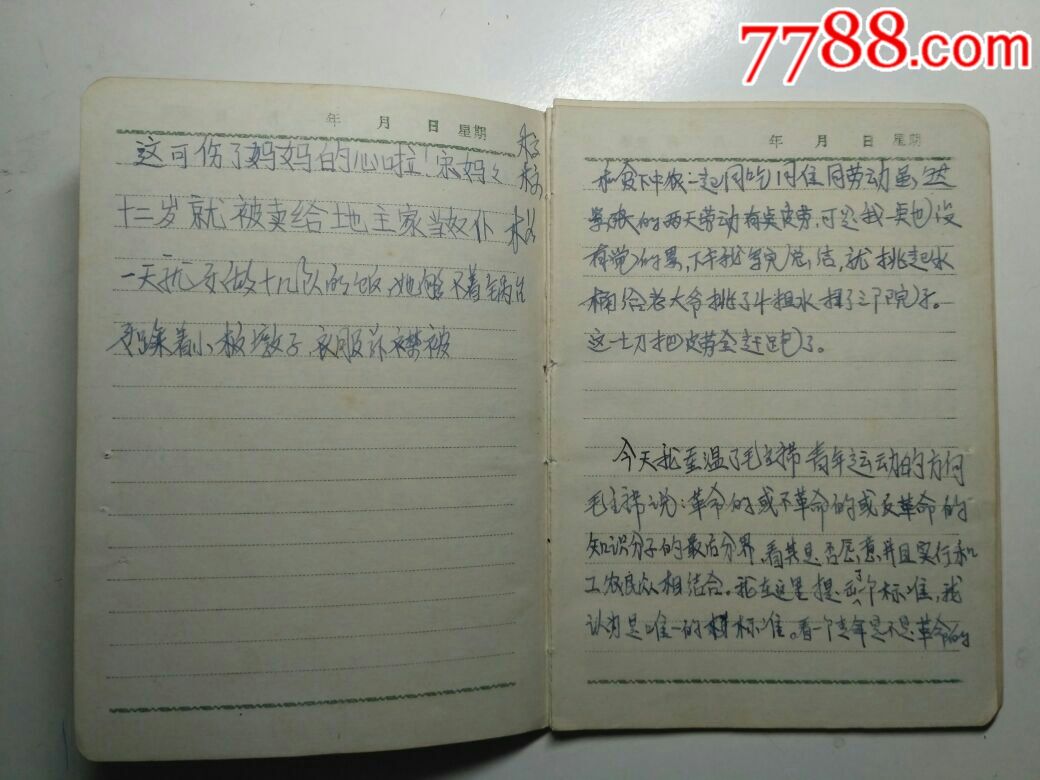 7788.com
年 月 日 星期
这可伤了妈妈的心啦！宋妈々
十二岁就被卖给地主家当奴仆
一天就要做十几队的饭，她够不着锅台
要踩着小板墩子，衣服前襟被
年 月 日 星期
和贫下中农一起同吃同住同劳动虽然
紧张的两天劳动有点疲劳，可是我一点也没
有觉的累，下午我写完总结，就挑起水
桶给老大爷挑了4担水扫了三个院子。
这一切把疲劳全赶跑了。
今天我重温了毛主席青年运动的方向
毛主席说：革命的或不革命的或反革命的
知识分子的最后分界，看其是否愿意并且实行和
工农民众相结合。我在这里提了一个标准，我
认为是唯一的标准。看一个青年是不是革命的